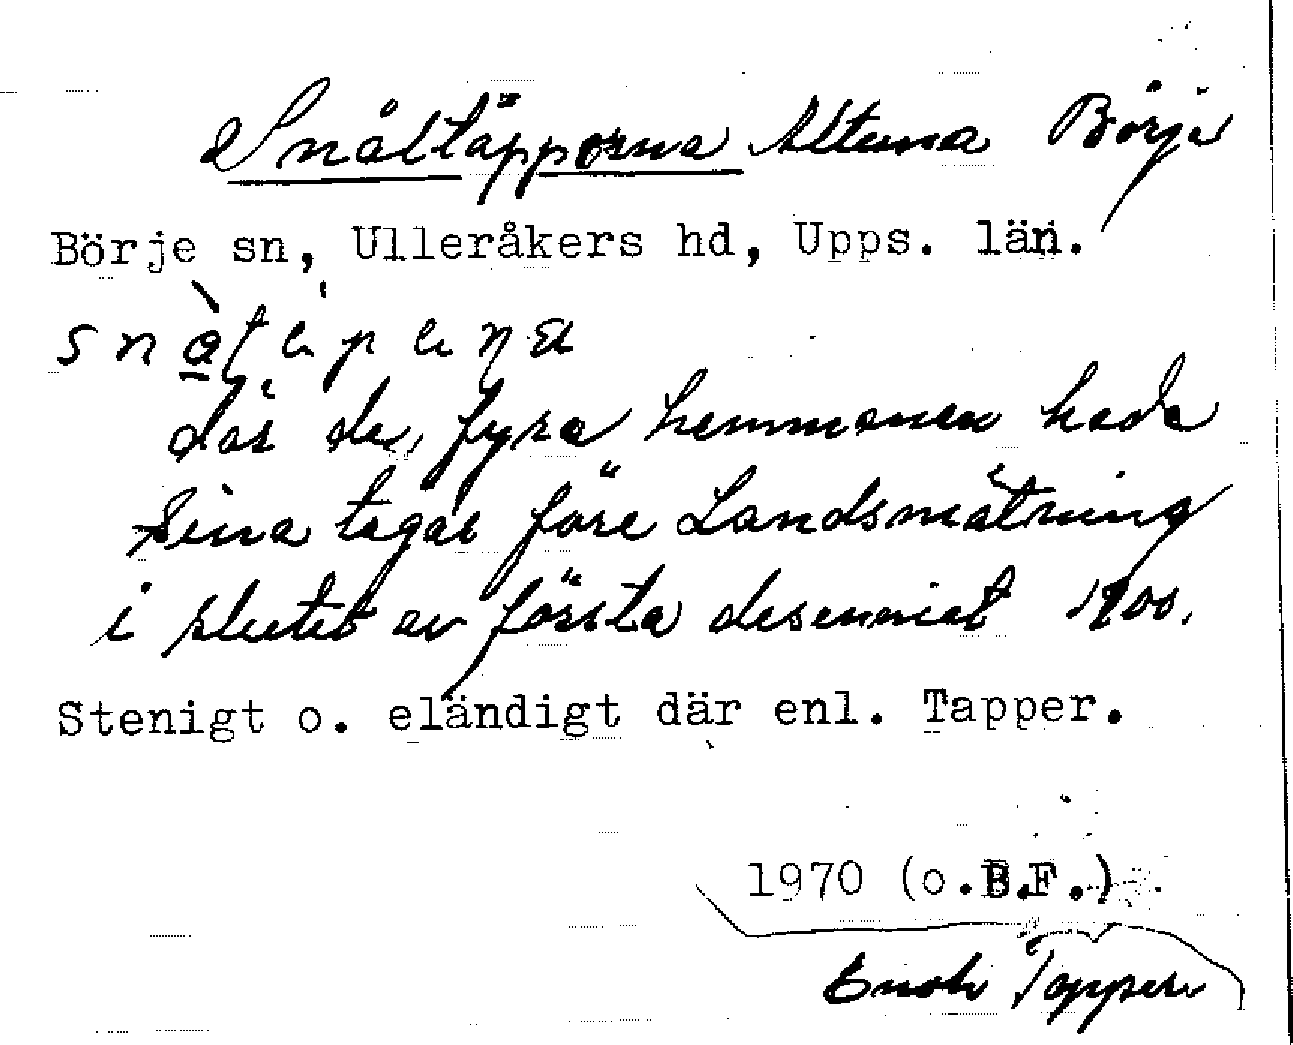 Snåltäpporna Altuna Börje
Börje sn, Ulleråkers hd, Upps. län.
där de fyra hemmanen hade
sina tegar före Landsmätning
i slutet av första desenniet 1900.
Stenigt o. eländigt där enl. Tapper.
1970 (o.B.F.)
Enok Tapper